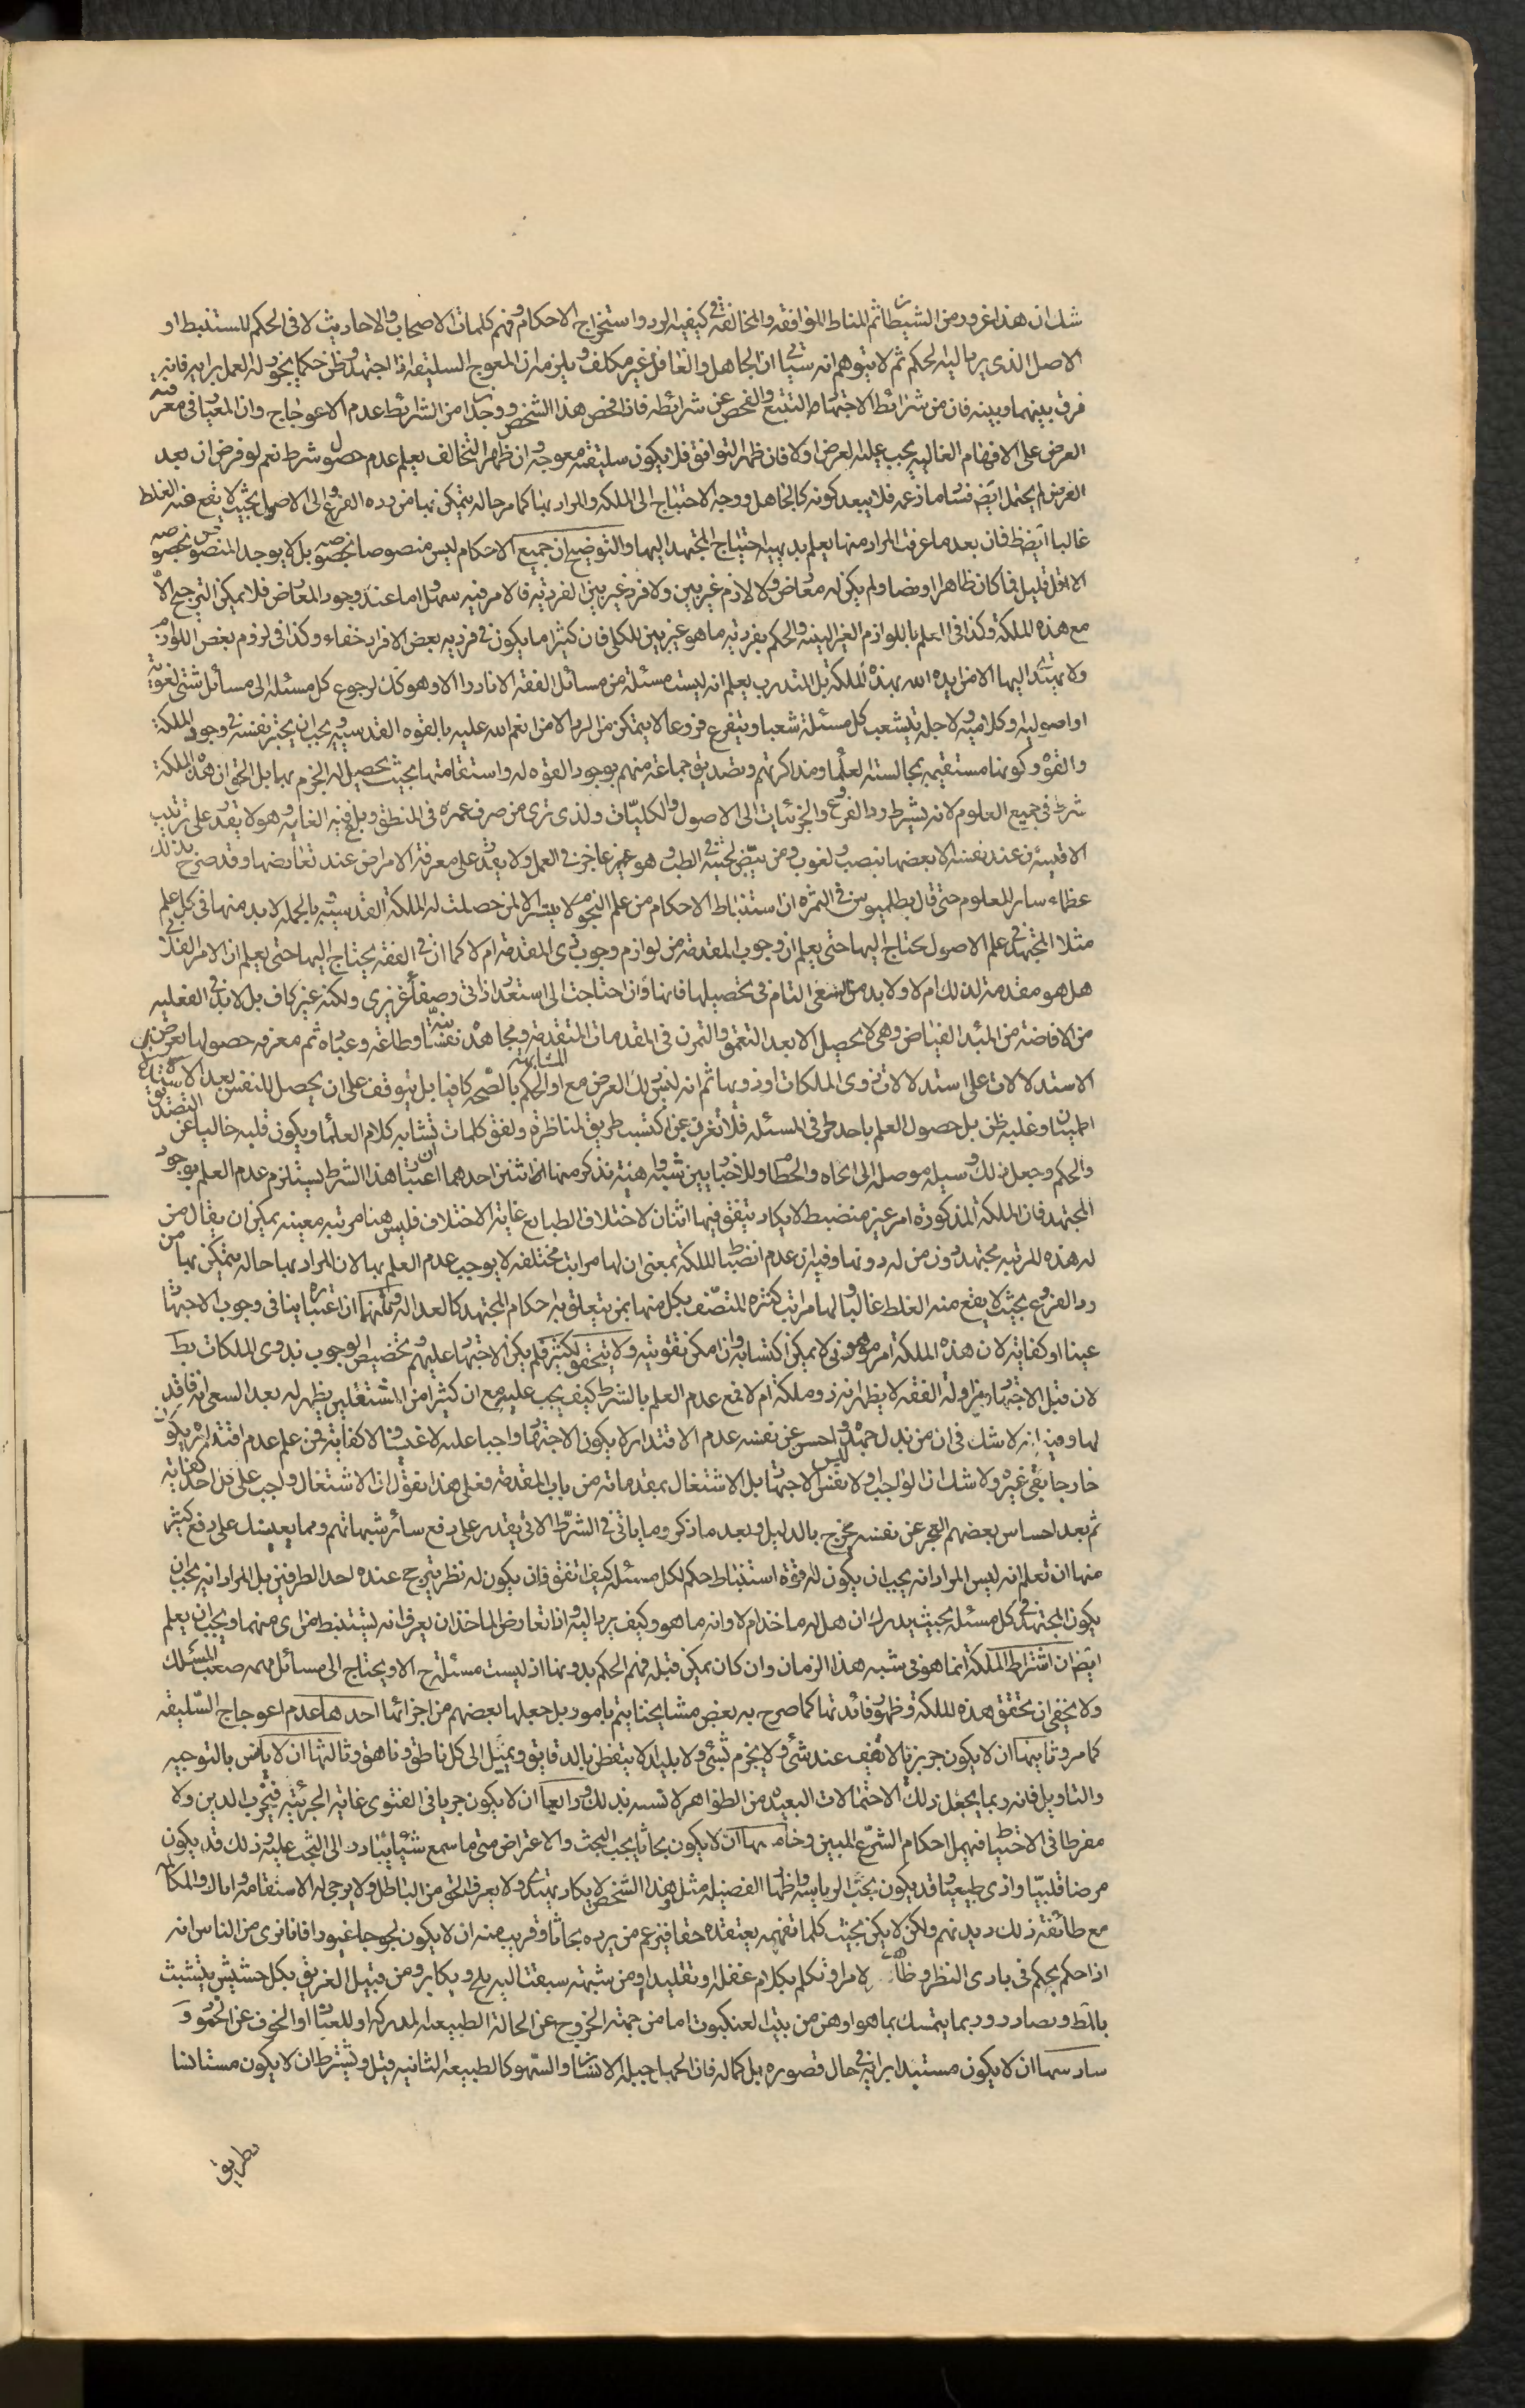 شك ان هذا غرور من الشيطان ثم المناط الموافقه والمخالفة في كيفيه الرد واستخراج الاحكام وفهم كلمات الاصحاب والاحاديث لا في الحكم المستنبط او
الاصل الذي يرد اليه الحكم ثم لا يتوهم انه سيأتي ان الجاهل والغافل غير مكلف ويلزمه ان المعوج السليقه اذا اجتهد وظن حكما يجوز له العمل برايه فانه
فرق بينهما وبينه فان من شرائط الاجتهاد التتبع والفحص عن شرائطه فاذا فحص هذا الشخص ووجد ان من الشرائط عدم الاعوجاج وان المعيار في معرفته
العرض على الافهام الغالبه يجب عليه العرض اولا فان ظهر التوافق فلا يكون سليقته معوجه وان ظهر التخالف يعلم عدم حصول شرط نعم لو فرض ان بعد
العرض لم يحتمل ايض فساد ما زعمه فلا يبعد كونه كالجاهل ووجه الاحتياج الى الملكه والمراد بها كما مر حاله يتمكن بها من رده الفروع الى الاصول بحيث لا يقع عنه الغلط
غالبا ايض ظ فان بعد ما عرفت المراد منها يعلم بديهيه احتياج المجتهد اليها والتوضيح ان جميع الاحكام ليس منصوصا بخصوصه بل لا يوجد المنصوص بخصوصه
الا اقل قليل فما كان ظاهرا او نصا ولم يكن له معارض ولا لازم غير بين ولا فرد غير بين الفرديه فالامر فيه سهل اما عند وجود المعارض فلا يمكن الترجيح الا
مع هذه الملكة وكذا في العلم باللوازم الغير البينه والحكم بفرديه ما هو غير بين للكلي فان كثيرا ما يكون في فرديه بعض الافراد خفاء وكذا في لزوم بعض اللوازم
ولا يهتدى اليها الا من ايده الله بهذه الملكة بل المتدرب يعلم انه ليست مسئلة من مسائل الفقه الا نادرا الا وهو كك لرجوع كل مسئله الى مسائل شتى لغوية
او اصوليه او كلاميه ولاجله يتشعب كل مسئلة شعبا ويتفرع فروعا لا يتمكن من الرد الا من انعم الله عليه بالقوه القدسيه ويجب ان يختبر نفسه في وجود الملكة
والقوه وكونها مستقيمه بمجالسته العلماء ومذاكرتهم وتصديق جماعة منهم بوجود القوه له واستقامتها بحيث يحصل له الجزم بها بل الحق ان هذه الملكة
شرط في جميع العلوم لانه يشترط رد الفروع والجزئيات الى الاصول والكليات ولذى ترى من صرف عمره في المنطق وبلغ فيه الغايه وهو لا يقدر على ترتيب
الاقيسة عند نفسه الا بعضها بنصب ولغوب ومن بيض لحيته في الطب وهو عاجز في العمل ولا يقدر على معرفة الامراض عند تعارضها وقد صرح بذلك
عظماء ساير العلوم حتى قال بطلميوس في الثمره ان استنباط الاحكام من علم النجوم لا يتيسر الا لمن حصلت له الملكة القدسيه وبالجمله لابد منها في كل علم
مثلا المجتهد في علم الاصول يحتاج اليها حتى يعلم ان وجوب المقدمة من لوازم وجوب ذى المقدمة ام لا كما ان في الفقه يحتاج اليها حتى يعلم ان الامر الفلاني
هل هو مقدمة لذلك ام لا ولابد من السعي التام في تحصيلها فانها وان احتاجت الى استعداد ذاتي وصفاء غريزى ولكنه غير كاف بل لابد في الفعليه
من الافاضة من المبدء الفياض وهي لا يحصل الا بعد التعمق والتمرن في المقدمات المتقدمة ومجاهدة نفسانيه وطاعة وعبادة ثم معرفه حصولها بعرض
الاستدلالات على استدلالات ذوى الملكات اوذويها ثم انه ليس ذلك العرض مع المشابهة او الحكم بالصحه كافيا بل يتوقف على ان يحصل للنفس بعد الاستدلال
اطمينان وغلبه ظن بل حصول العلم باحد طرفي المسئله فلا تغرن عن اكتسب طريق المناظرة ولفق كلمات تشابه كلام العلماء ويكون قلبه خاليا عن التصديق
والحكم وجعل ذلك وسيله موصله الى الجاه والحطام وللاخباريين شبه واهنة نذكر منها اثنتين احدهما ان اعتبار هذا الشرط يستلزم عدم العلم بوجود
المجتهد فان الملكة المذكورة امر غير منضبط لا يكاد يتفق فيها اثنان لاختلاف الطبايع غاية الاختلاف فليس هنا مرتبه معينه يمكن ان يقال من
له هذه المرتبه مجتهد دون من له دونها وفيه ان عدم انضباط الملكة بمعنى ان لها مراتب مختلفه لا يوجب عدم العلم بها لان المراد بها حاله يتمكن بها من
رد الفروع بحيث لا يقع منه الغلط غالبا ولها مراتب كثيره المتصف بكل منها ممن يتعلق به احكام المجتهد كالعداله وثانيهما ان اعتباره ينافي وجوب الاجتهاد
عينا او كفاية لان هذه الملكة امر موهوبي لا يمكن اكتسابه وان امكن تقويته ولا يتحقق لكثير فلم يكن الاجتهاد عليهم وتخصيص الوجوب بذوى الملكات بط
لان قبل الاجتهاد ومزاولة الفقه لا يظهر انه ذو ملكة ام لا فمع عدم العلم بالشرط كيف يجب عليه مع ان كثيرا من المشتغلين يظهر له بعد السعي انه فاقد
لها وفيه انه لا شك في ان من بذل جهده واحس عن نفسه عدم الاقتدار لا يكون الاجتهاد واجبا عليه لا عينا ولا كفاية فمن علم عدم اقتداره يكون
خارجا بقى غيره ولا شك ان الواجب اولا ليس نفس الاجتهاد بل الاشتغال بمقدماته من باب المقدمة فعلى هذا نقول ان الاشتغال واجب على كل احد كفاية
ثم بعد احساس بعضهم العجز عن نفسه يخرج بالدليل وبعد ما ذكر وما ياتى في الشرط الاتى يقدر على دفع سائر شبهاتهم ومما يعينك على دفع كثير
منها ان تعلم انه ليس المراد انه يجب ان يكون له قوة استنباط حكم لكل مسئله كيف اتفق فان يكون له نظر يترجح عنده احد الطرفين بل المراد انه يجب ان
يكون المجتهد في كل مسئله بحيث يدرك ان هل له ماخذ ام لا وانه ما هو وكيف يرد اليه واذا تعارض الماخذان يعرف انه يستنبط من اى منهما ويجب ان يعلم
ايض ان اشتراط الملكة انما هو في شبه هذا الزمان وان كان يمكن قبله فهم الحكم بدونها اذ ليست مسئلة ح الا ويحتاج الى مسائل مهمه صعب المسلك
ولا يخفى ان تحقق هذه الملكة وظهور فائدتها كما صرح به بعض مشايخنا يتم بامور بل جعلها بعضهم من اجزائها احدها عدم اعوجاج السليقه
كما مر وثانيها ان لا يكون جربزيا لا تقف عند شئ ولا يجزم بشئ ولا بليدا لا يتفطن بالدقايق ويميل الى كل ناطق وناهق وثالثها ان لا يانس بالتوجيه
والتاويل فانه ربما يجعل ذلك الاحتمالات البعيده من الظواهر لانسه بذلك ورابعها ان لا يكون جريا في الفتوى غاية الجرئه فيخرب الدين ولا
مفرطا في الاحتياط فيهمل احكام الشرع المبين وخامسها ان لا يكون بحاثا يحب البحث والاعتراض متى ما سمع شيئا يبادر الى البحث عليه وذلك قد يكون
مرضا قلبيا واذى طبيعيا وقد يكون بحب الرياسه واظهار الفضيله ومثل هذا الشخص لا يكاد يهتدى ولا يعرف الحق من الباطل ولا يرجى له الاستقامه واياك والمكالمه
مع طائفة ذلك ديدنهم ولكن لا يكن بحيث كلما تفهمه يعتقده حقا فيزعم من يرده بحاثا وقريب منه ان لا يكون لجوجا غيورا فانا نرى من الناس انه
اذا حكم بحكم في بادى النظر و الامر او تكلم بكلام غفله او تقليدا ومن شبهة سبقت اليه يلج ويكابر ومن قبيل الغريق بكل حشيش يتشبث
بالط ويصادر وربما يتمسك بما هو اوهن من بيت العنكبوت اما من جهة الخروج عن الحالة الطبيعيه المدركه او للعناد او الخوف عن الحموو
سادسها ان لا يكون مستبدا برايه في حال قصوره بل كماله فان الجهل جبله الانسان والسهو كالطبيعه الثانيه قيل ويشترط ان لا يكون مستانسا
بطريق